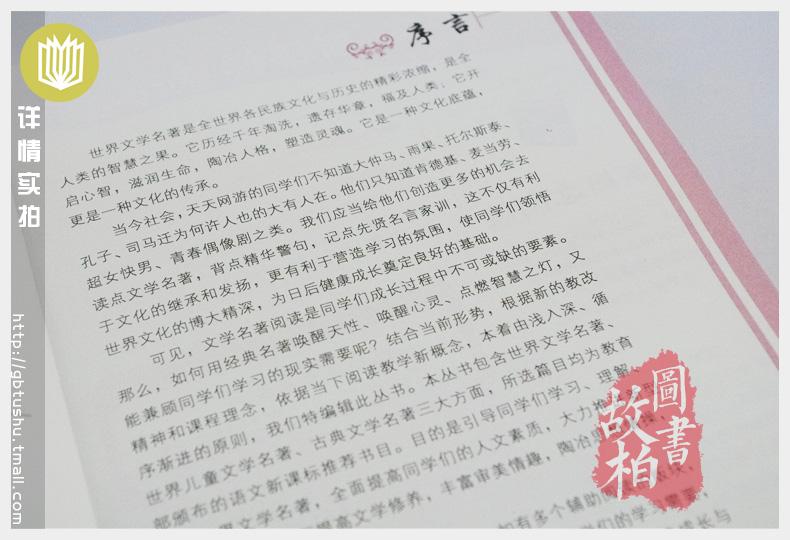 序言
世界文学名著是全世界各民族文化与历史的精彩浓缩，是全
人类的智慧之果。它历经千年淘洗，遗存华章，福及人类；它开
启心智，滋润生命，陶冶人格，塑造灵魂。它是一种文化底蕴，
更是一种文化的传承。
当今社会，天天网游的同学们不知道大仲马、雨果、托尔斯泰、
孔子、司马迁为何许人也的大有人在。他们只知道肯德基、麦当劳、
超女快男、青春偶像剧之类。我们应当给他们创造更多的机会去
读点文学名著，背点精华警句，记点先贤名言家训，这不仅有利
于文化的继承和发扬，更有利于营造学习的氛围，使同学们领悟
世界文化的博大精深，为日后健康成长奠定良好的基础。
可见，文学名著阅读是同学们成长过程中不可或缺的要素。
那么，如何用经典名著唤醒天性、唤醒心灵、点燃智慧之灯，又
能兼顾同学们学习的现实需要呢？结合当前形势，根据新的教改
精神和课程理念，依据当下阅读教学新概念，本着由浅入深、循
序渐进的原则，我们特编辑此丛书。本丛书包含世界文学名著、
世界儿童文学名著、古典文学名著三大方面，所选篇目均为教育
部颁布的语文新课标推荐书目。目的是引导同学们学习、理解、
文学名著，全面提高同学们的人文素质，大力推
提高文学修养，丰富审美情趣，陶冶
如有多个辅助
们的学习需要，
成长与
详情实拍
http://gbtushu.tmall.com
圖書
故柏